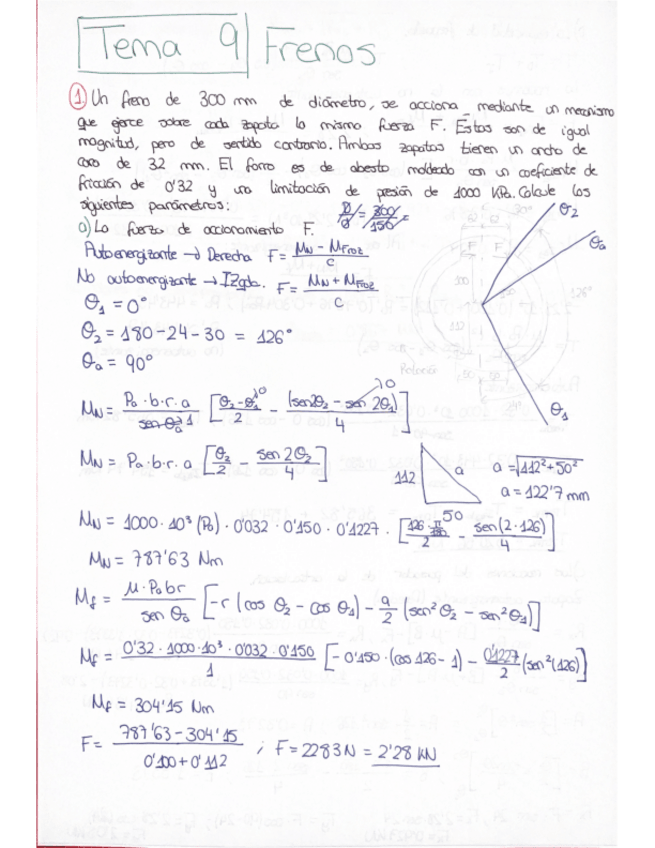 Tema 9 Frenos
1. Un freno de 300 mm de diámetro, se acciona mediante un mecanismo
que ejerce sobre cada zapata la misma fuerza F. Estas son de igual
magnitud, pero de sentido contrario. Ambas zapatas tienen un ancho de
cara de 32 mm. El forro es de abesto moldeado con un coeficiente de
fricción de 0'32 y una limitación de presión de 1000 KPa. Calcule los
siguientes parámetros:
a) La fuerza de accionamiento F.
Autoenergizante → Derecha F = (MN - MFroz)/c
No autoenergizante → IZqda. F = (MN + MFroz)/c
θ1 = 0°
θ2 = 180 - 24 - 30 = 126°
θa = 90°
θ2
θa
126°
θ1
MN = Pa·b·r·a/(sen θa) 1 [(θ2 - θ1)/2 - (sen 2θ2 - sen 2θ1)/4]
MN = Pa·b·r·a [θ2/2 - sen 2θ2/4]
112 a 50
a = √(112² + 50²)
a = 122'7 mm
MN = 1000·10³ (Pa)·0'032·0'150·0'1227·[(126 π/180)/2 - sen(2·126)/4]
MN = 787'63 Nm
Mf = μ·Pa b r/sen θa [-r (cos θ2 - cos θ1) - a/2 (sen² θ2 - sen² θ1)]
Mf = 0'32·1000·10³·0'032·0'150/1 [-0'150·(cos 126 - 1) - 0'1227/2 (sen²(126))]
Mf = 304'15 Nm
F = (787'63 - 304'15)/(0'100 + 0'112) ; F = 2283 N = 2'28 KN